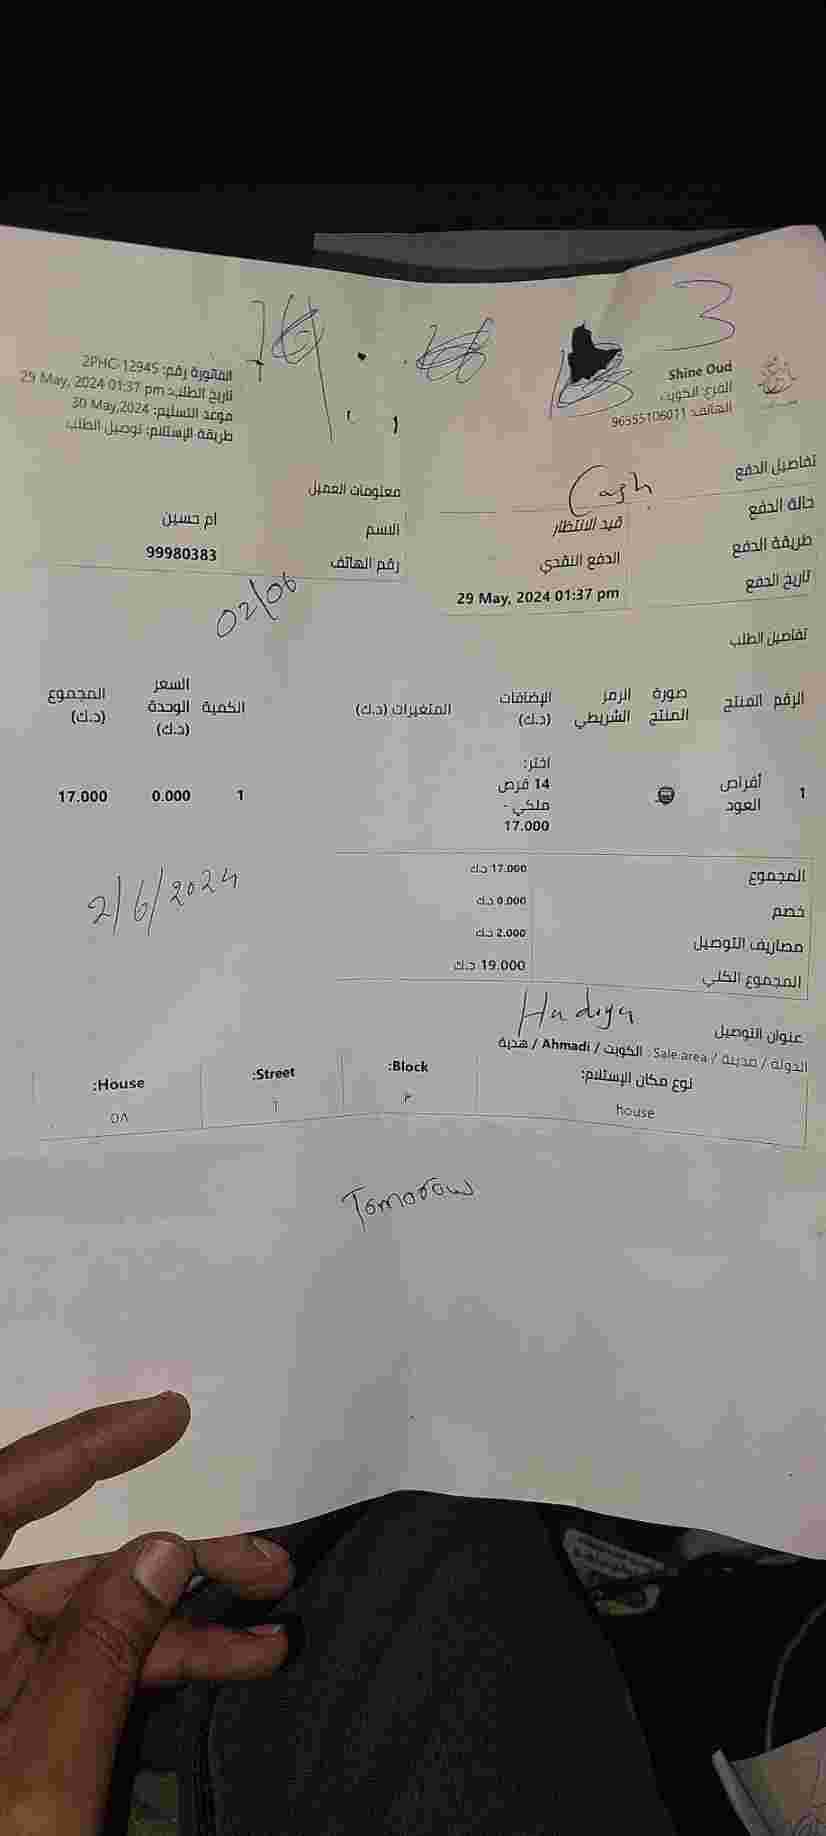 3
Shine Oud
الفرع: الكويت
الهاتف: 96555106011
الفاتورة رقم: 2PHC-12945
تاريخ الطلب: 29 May, 2024 01:37 pm
موعد التسليم: 30 May,2024
طريقة الإستلام: توصيل الطلب
تفاصيل الدفع
Cash
حالة الدفع قيد الانتظار
طريقة الدفع الدفع النقدي
تاريخ الدفع 29 May, 2024 01:37 pm
معلومات العميل
الاسم ام حسين
رقم الهاتف 99980383
02/06
تفاصيل الطلب
الرقم المنتج صورة المنتج الرمز الشريطي الإضافات (د.ك) المتغيرات (د.ك) الكمية السعر الوحدة (د.ك) المجموع (د.ك)
1 أقراص العود اختر: 14 قرص ملكي - 17.000 1 0.000 17.000
المجموع 17.000 د.ك
خصم 0.000 د.ك
مصاريف التوصيل 2.000 د.ك
المجموع الكلي 19.000 د.ك
2/6/2024
Hadiya
عنوان التوصيل
الدولة / مدينة / Sale area : الكويت / Ahmadi / هدية
نوع مكان الإستلام: Block: Street: House:
house ٢ ٦ ٥٨
Tomorow